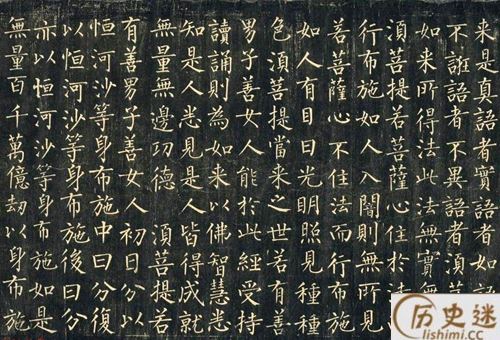 来是真語者實語者
不誑語者不異語者須
如来所得法此法無實無
須菩提若菩薩心住於法
行布施如人入闇則無所見
若菩薩心不住法而行布施
如人有目日光明照見種種
色須菩提當来之世若有善
男子善女人能於此經受持
讀誦則為如来以佛智慧悉
知是人悉見是人皆得成就
無量無邊功德 須菩提若
有善男子善女人初日分以
恒河沙等身布施中日分復
以恒河沙等身布施後日分
亦以恒河沙等身布施如是
無量百千萬億劫以身布施
历史迷
lishimi.cc